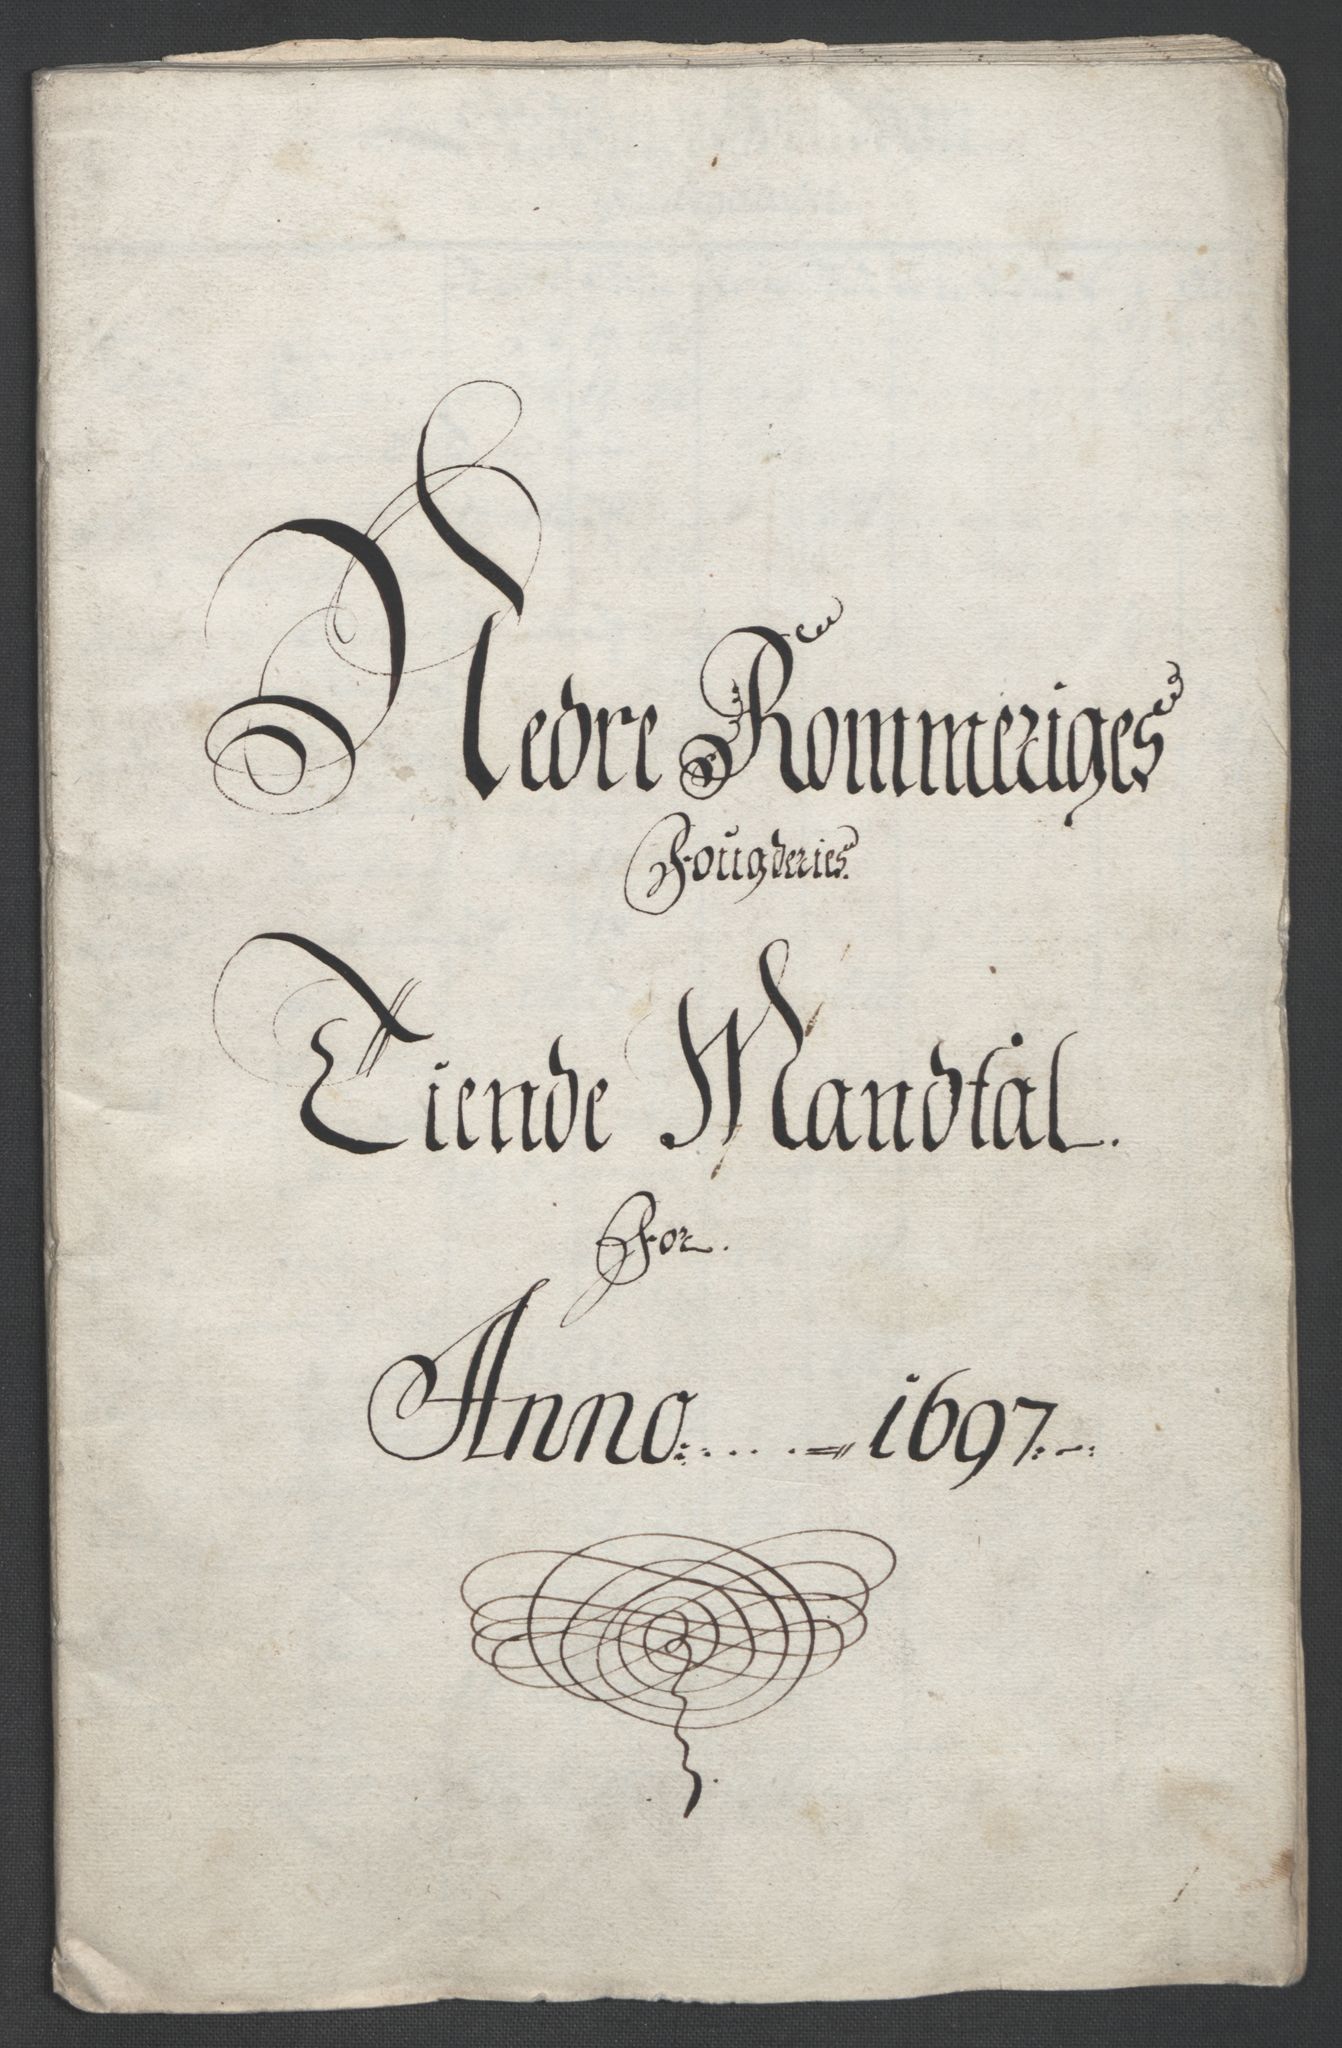 Nedre Rommeriges
Fougderies.
Tiende Mandtal.
For.
Anno. . . . . = 1697. -